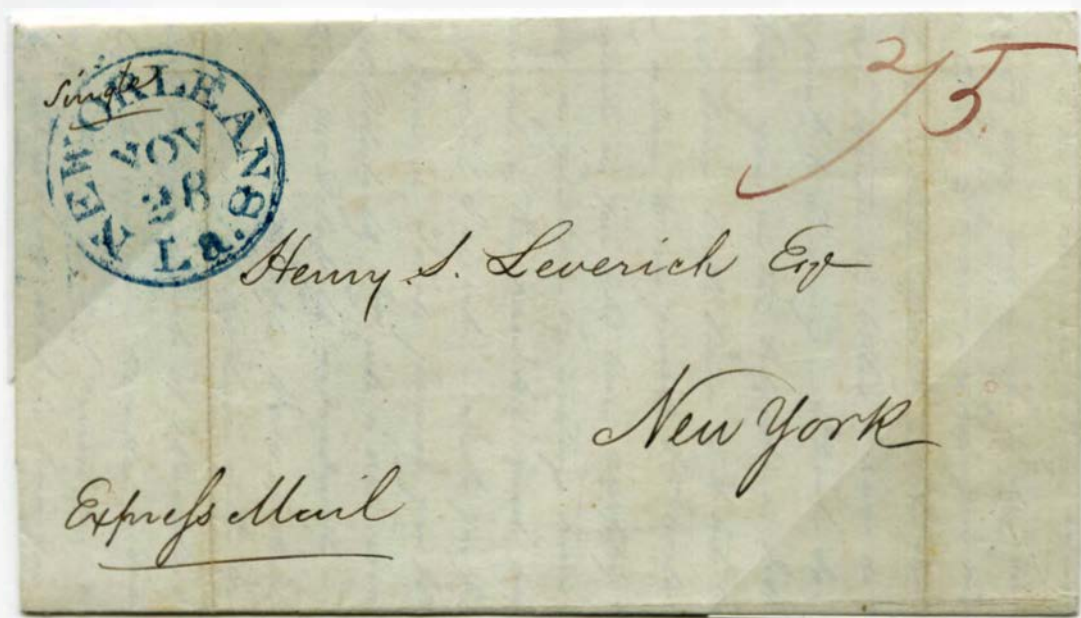 Single
NEW ORLEANS La.
NOV
28
75
Henry S. Leverich Esqr
New York
Expreſs Mail